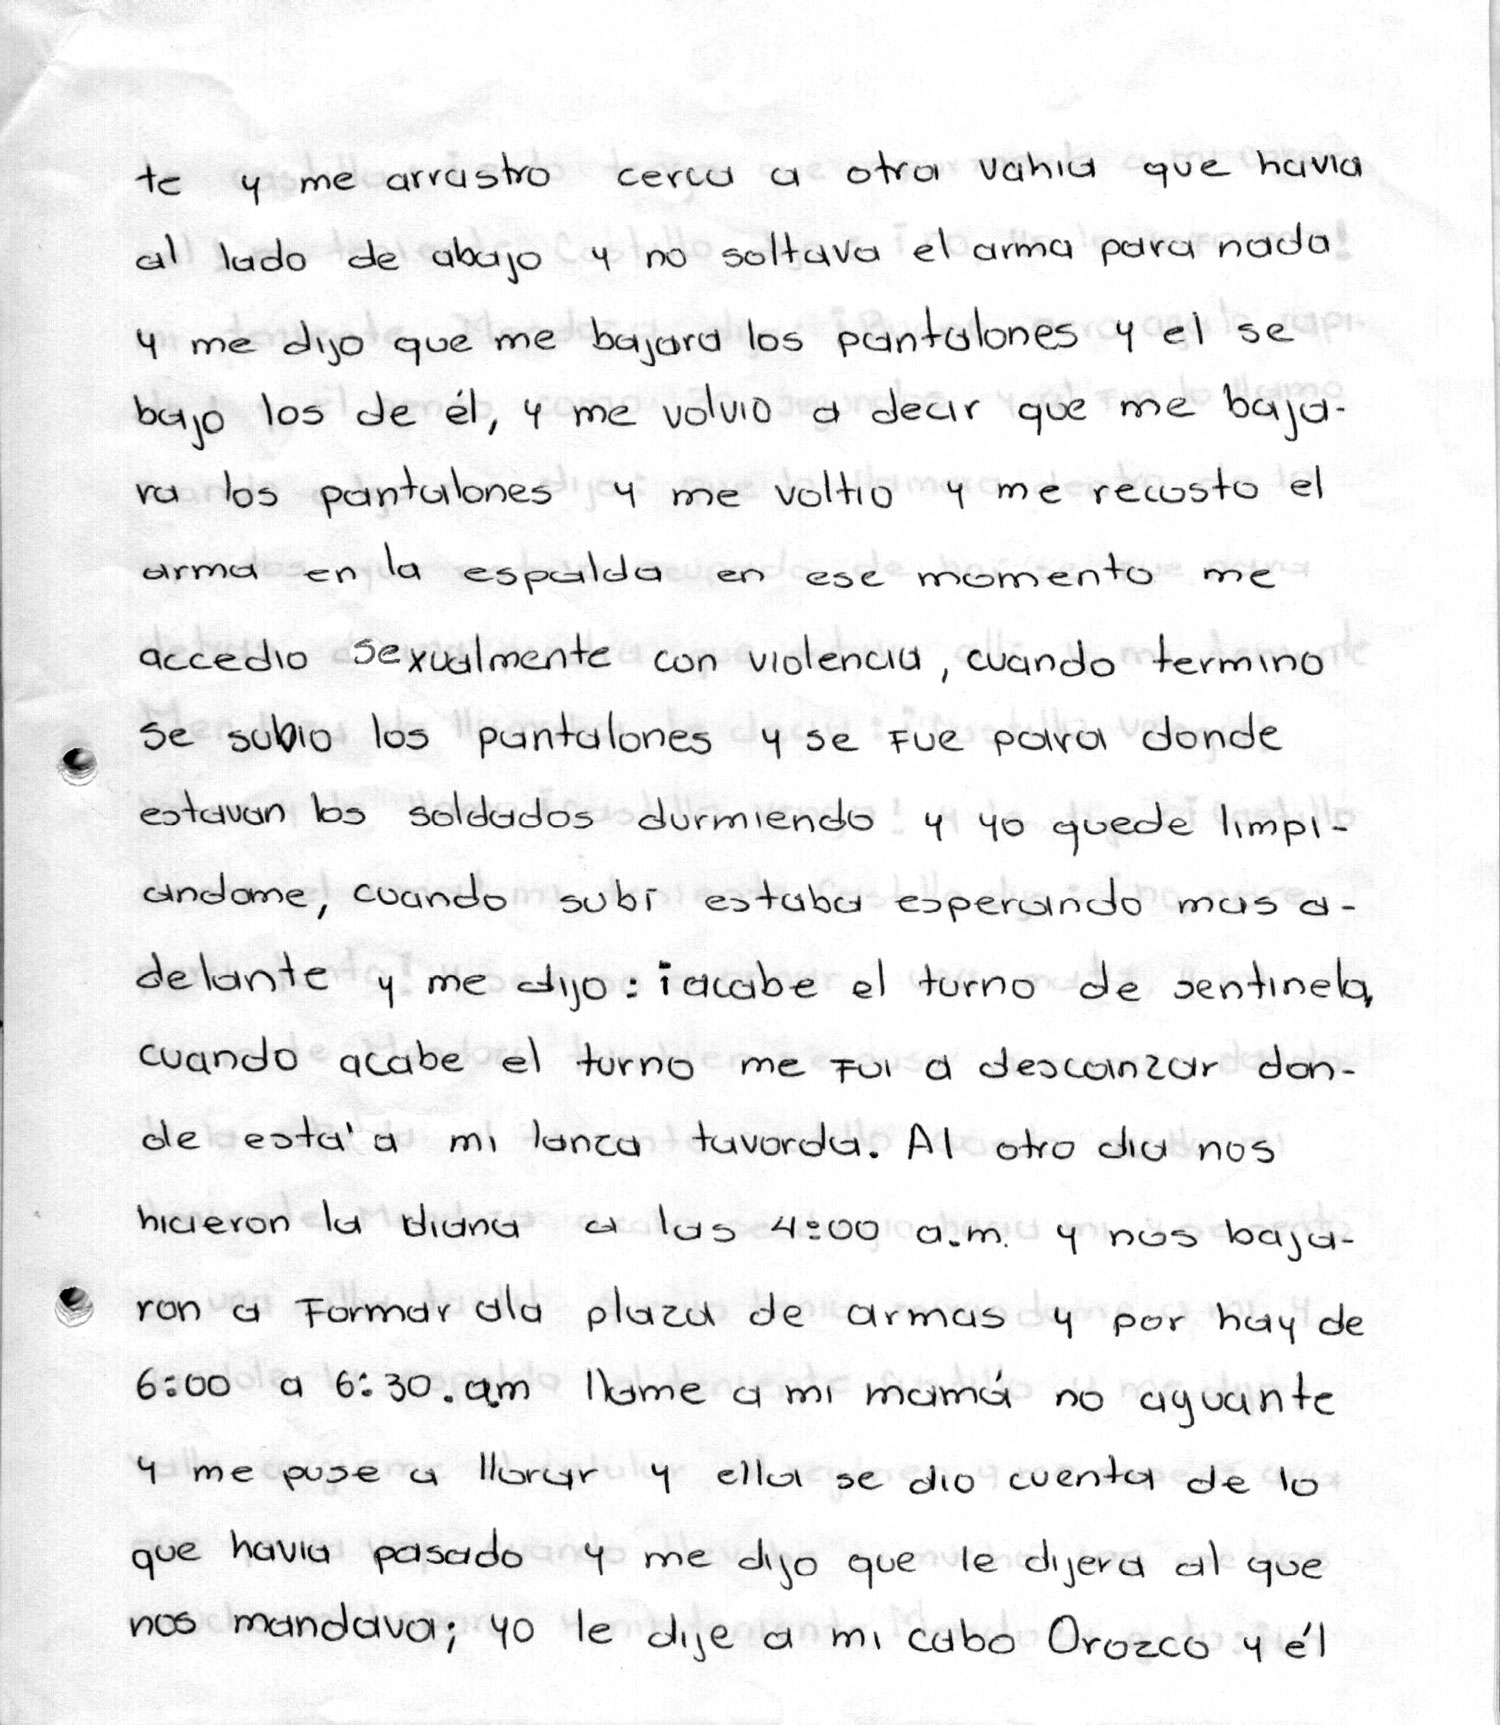 te y me arrastro cerca a otra vahia que havia
al lado de abajo y no soltava el arma para nada
y me dijo que me bajara los pantalones y el se
bajo los de él, y me volvio a decir que me baja-
ra los pantalones y me voltio y me recosto el
arma en la espalda en ese momento me
accedio sexualmente con violencia, cuando termino
se subio los pantalones y se fue para donde
estavan los soldados durmiendo y yo quede limpi-
andome, cuando subi estaba esperando mas a-
delante y me dijo: ¡acabe el turno de sentinela,
cuando acabe el turno me fui a descanzar don-
de esta'a mi lanza tavorda. Al otro dia nos
hicieron la diana a las 4:00 a.m. y nos baja-
ron a formar ala plaza de armas y por hay de
6:00 a 6:30.am llame a mi mamá no aguante
y me puse a llorar y ella se dio cuenta de lo
que havia pasado y me dijo que le dijera al que
nos mandava; yo le dije a mi cabo Orozco y él